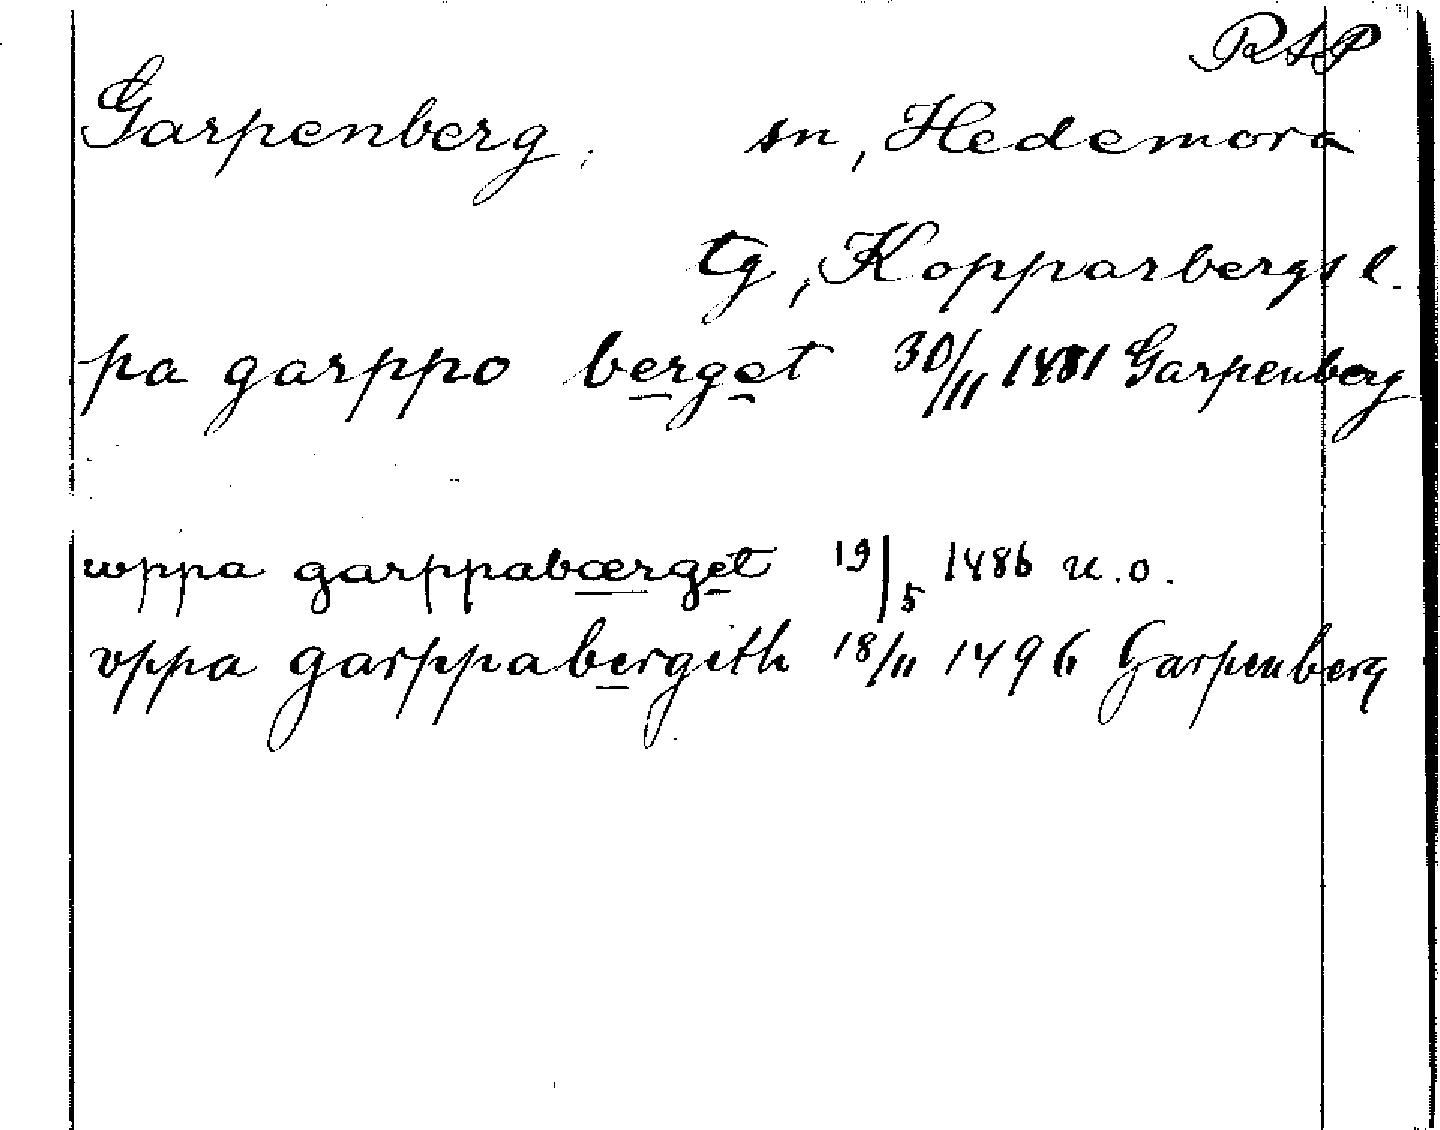 RAP
Garpenberg, sn, Hedemora
tg, Kopparbergs l.
pa garppo berget 30/11 1481 Garpenberg
wppa garppabærget 19/5 1486 u.o.
vppa garppabergith 18/11 1496 Garpenberg